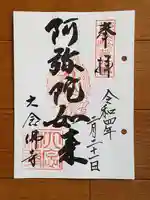 奉拝
令和四年
二月二十一日
阿弥陀如来
大念佛寺